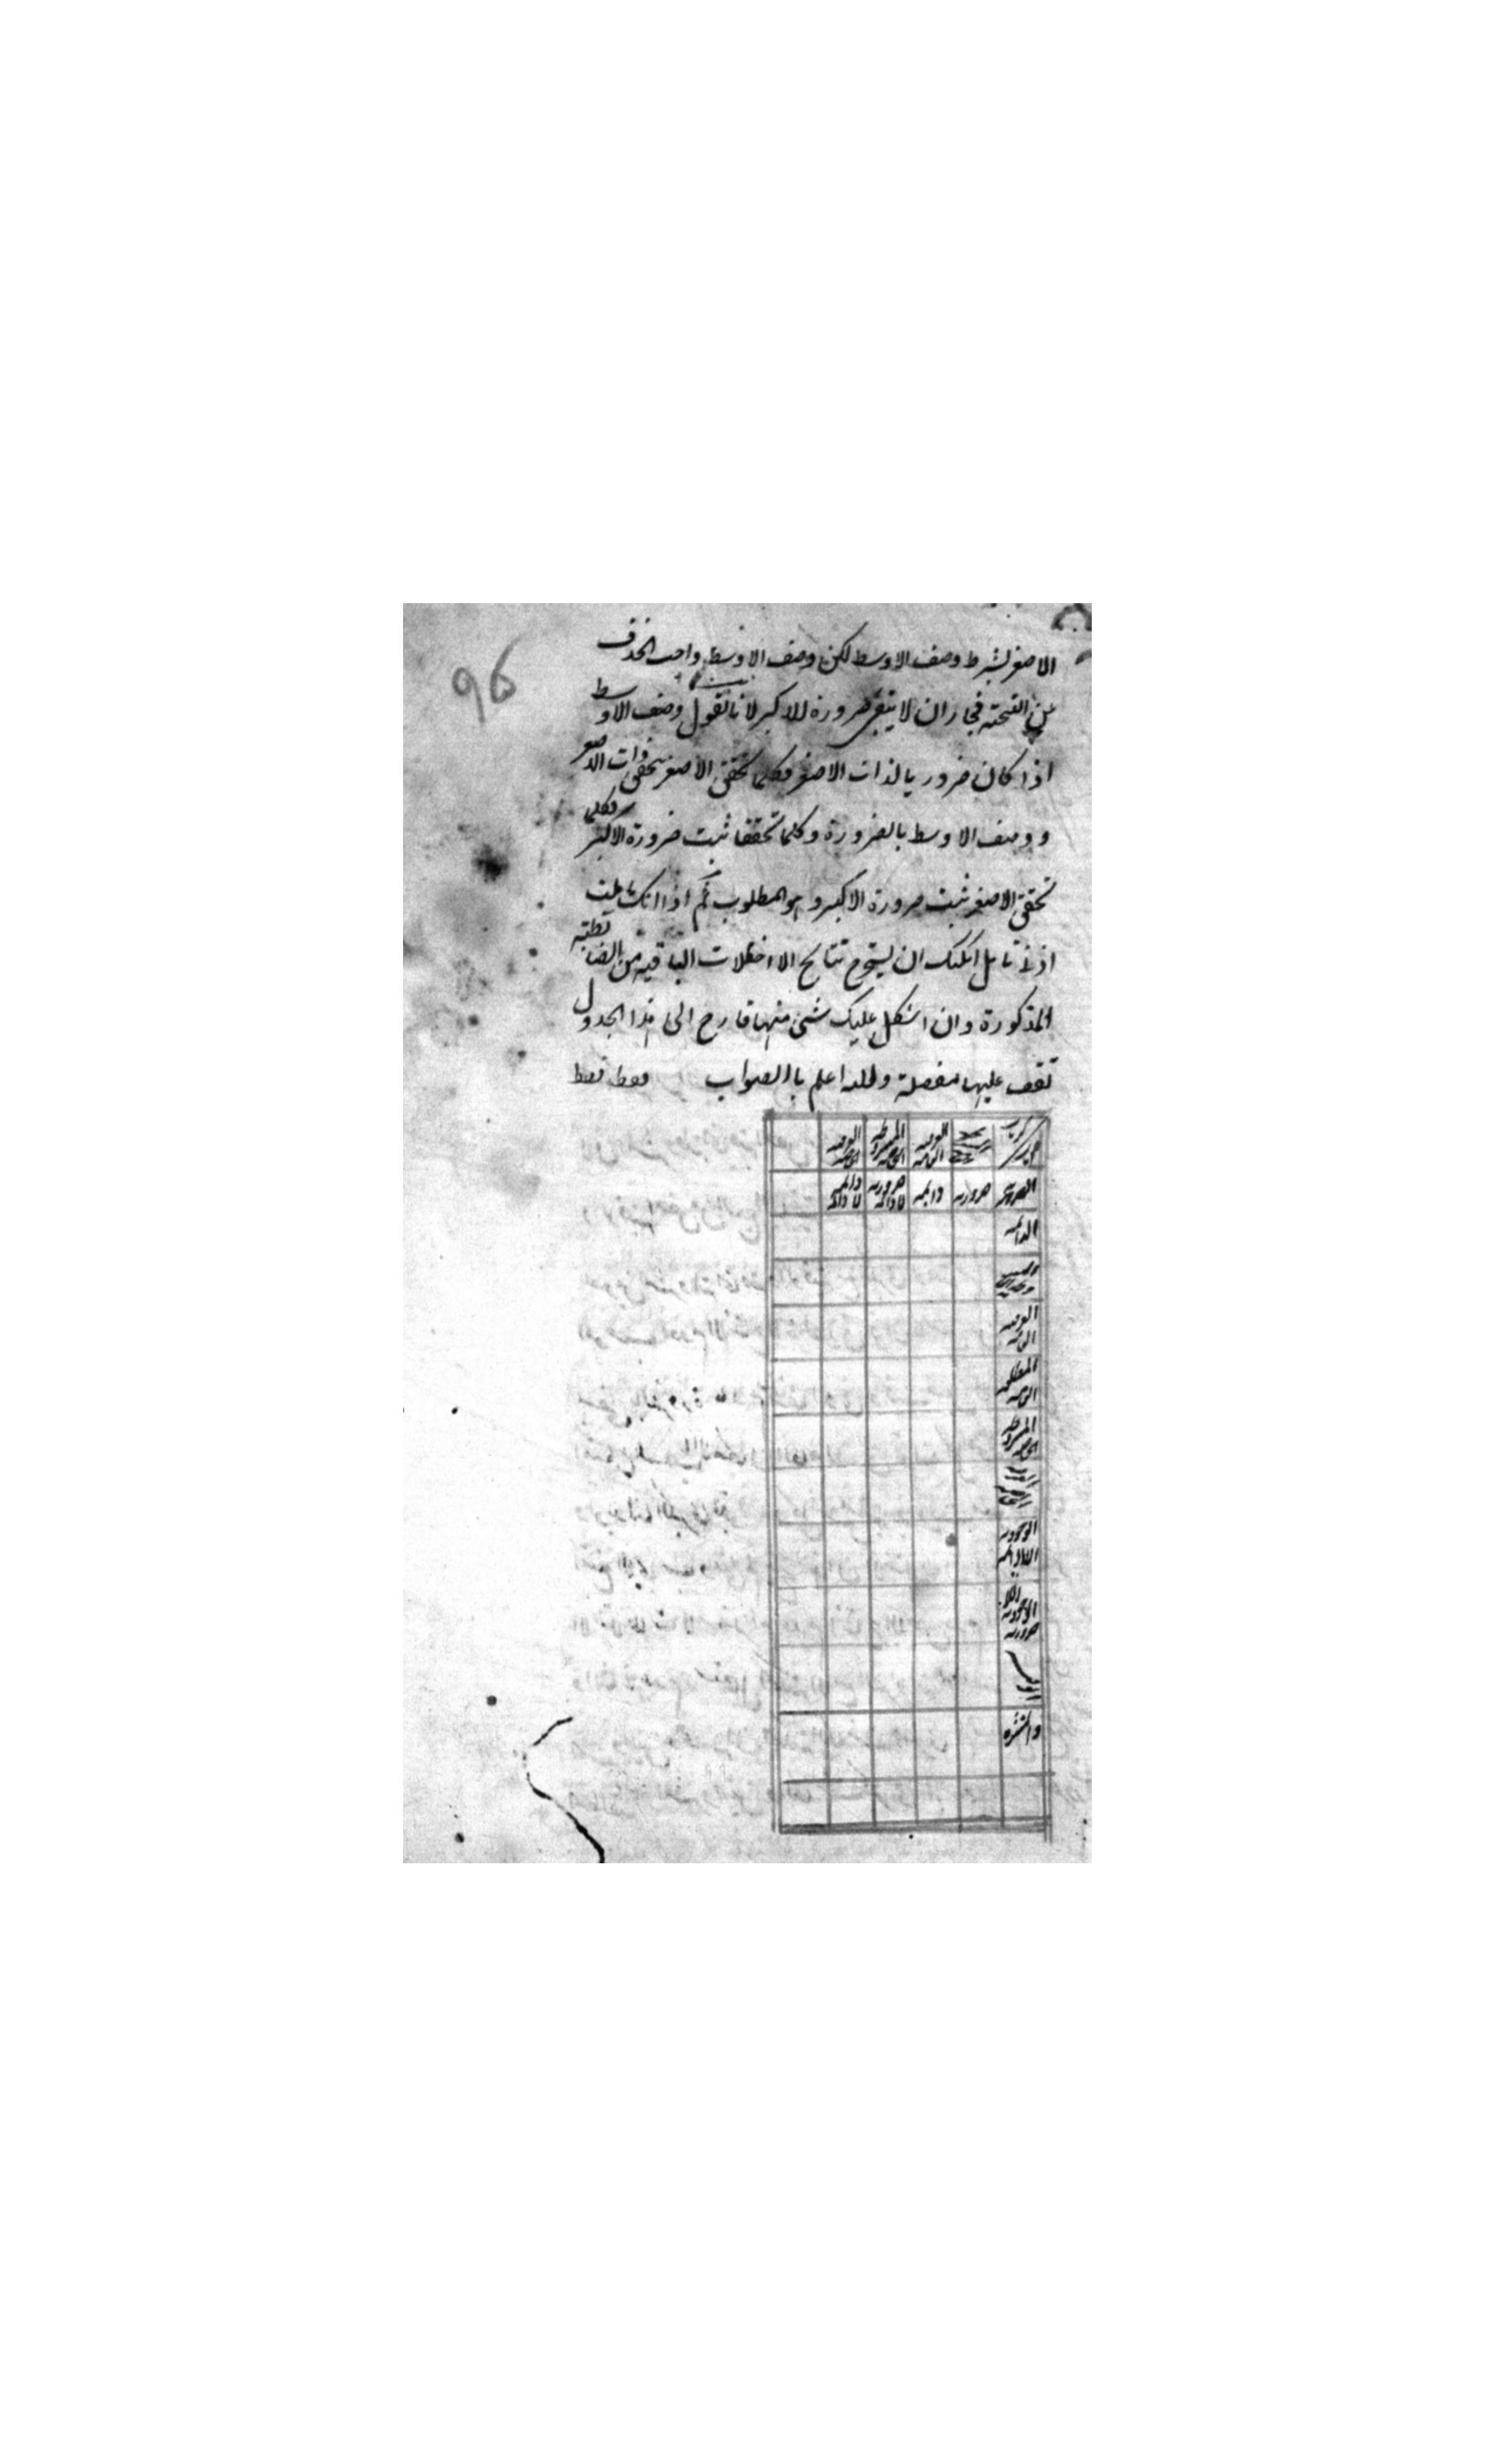 الاصغر بشرط وصف الاوسط لكن وصف الاوسط واجب الحذف
عن النتيجة فجاز ان لا يبقى ضرورة للاكبر لانا نقول وصف الاوسط
اذا كان ضروريا لذات الاصغر فكلما تحقق الاصغر تحقق ذات الاصغر
ووصف الاوسط بالضرورة وكلما تحققا ثبت ضرورة الاكبر فكلما
تحقق الاصغر ثبت ضرورة الاكبر وهو المطلوب ثم اذا انك تاملت
ادنى تامل امكنك ان يستخرج نتايج الاختلاطات الباقيه من الضابطة
المذكورة وان اشكل عليك شئ منها فارجع الى هذا الجدول
تقف عليها مفصلة والله اعلم باالصواب فقط فقط
كبريات العرفيه العامه المشروطه الخاصه العرفيه الخاصه
صغريات
الضروريه ضروريه دائمه ضروريه لا دائمه دائمه لا دائمه
الدائمه
العرفيه العامه
المطلقه العامه
المشروطه الخاصه
الوجوديه اللادائمه
الوجوديه اللا ضروريه
والمنتشره
96